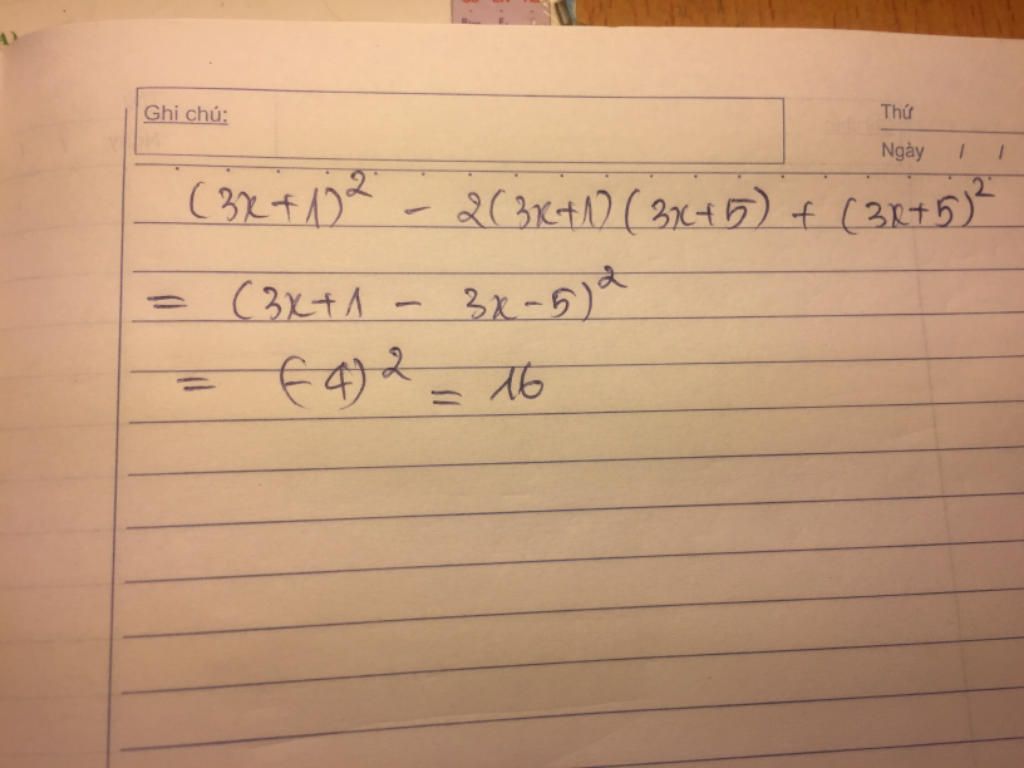 Ghi chú:
Thứ
Ngày / /
(3x+1)² - 2(3x+1)(3x+5) + (3x+5)²
= (3x+1 - 3x-5)²
= (-4)² = 16